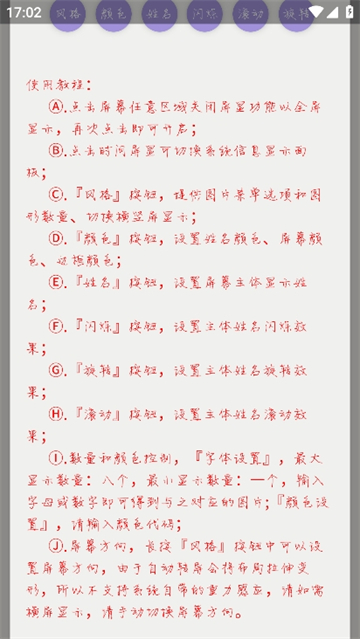 17:02
风格 颜色 姓名 闪烁 滚动 旋转
使用教程：
Ⓐ.点击屏幕任意区域关闭屏显功能以全屏
显示，再次点击即可开启；
Ⓑ.点击时间屏显可切换系统信息显示面
板；
Ⓒ.『风格』按钮，提供图片菜单选项和图
形数量、切换横竖屏显示；
Ⓓ.『颜色』按钮，设置姓名颜色、屏幕颜
色、边框颜色；
Ⓔ.『姓名』按钮，设置屏幕主体显示姓
名；
Ⓕ.『闪烁』按钮，设置主体姓名闪烁效
果；
Ⓖ.『旋转』按钮，设置主体姓名旋转效
果；
Ⓗ.『滚动』按钮，设置主体姓名滚动效
果；
Ⓘ.数量和颜色控制，『字体设置』，最大
显示数量：八个，最小显示数量：一个，输入
字母或数字即可得到与之对应的图片；『颜色设
置』，请输入颜色代码；
Ⓙ.屏幕方向，长按『风格』按钮中可以设
置屏幕方向，由于自动转屏会将布局拉伸变
形，所以不支持系统自带的重力感应，请如需
横屏显示，请手动切换屏幕方向。